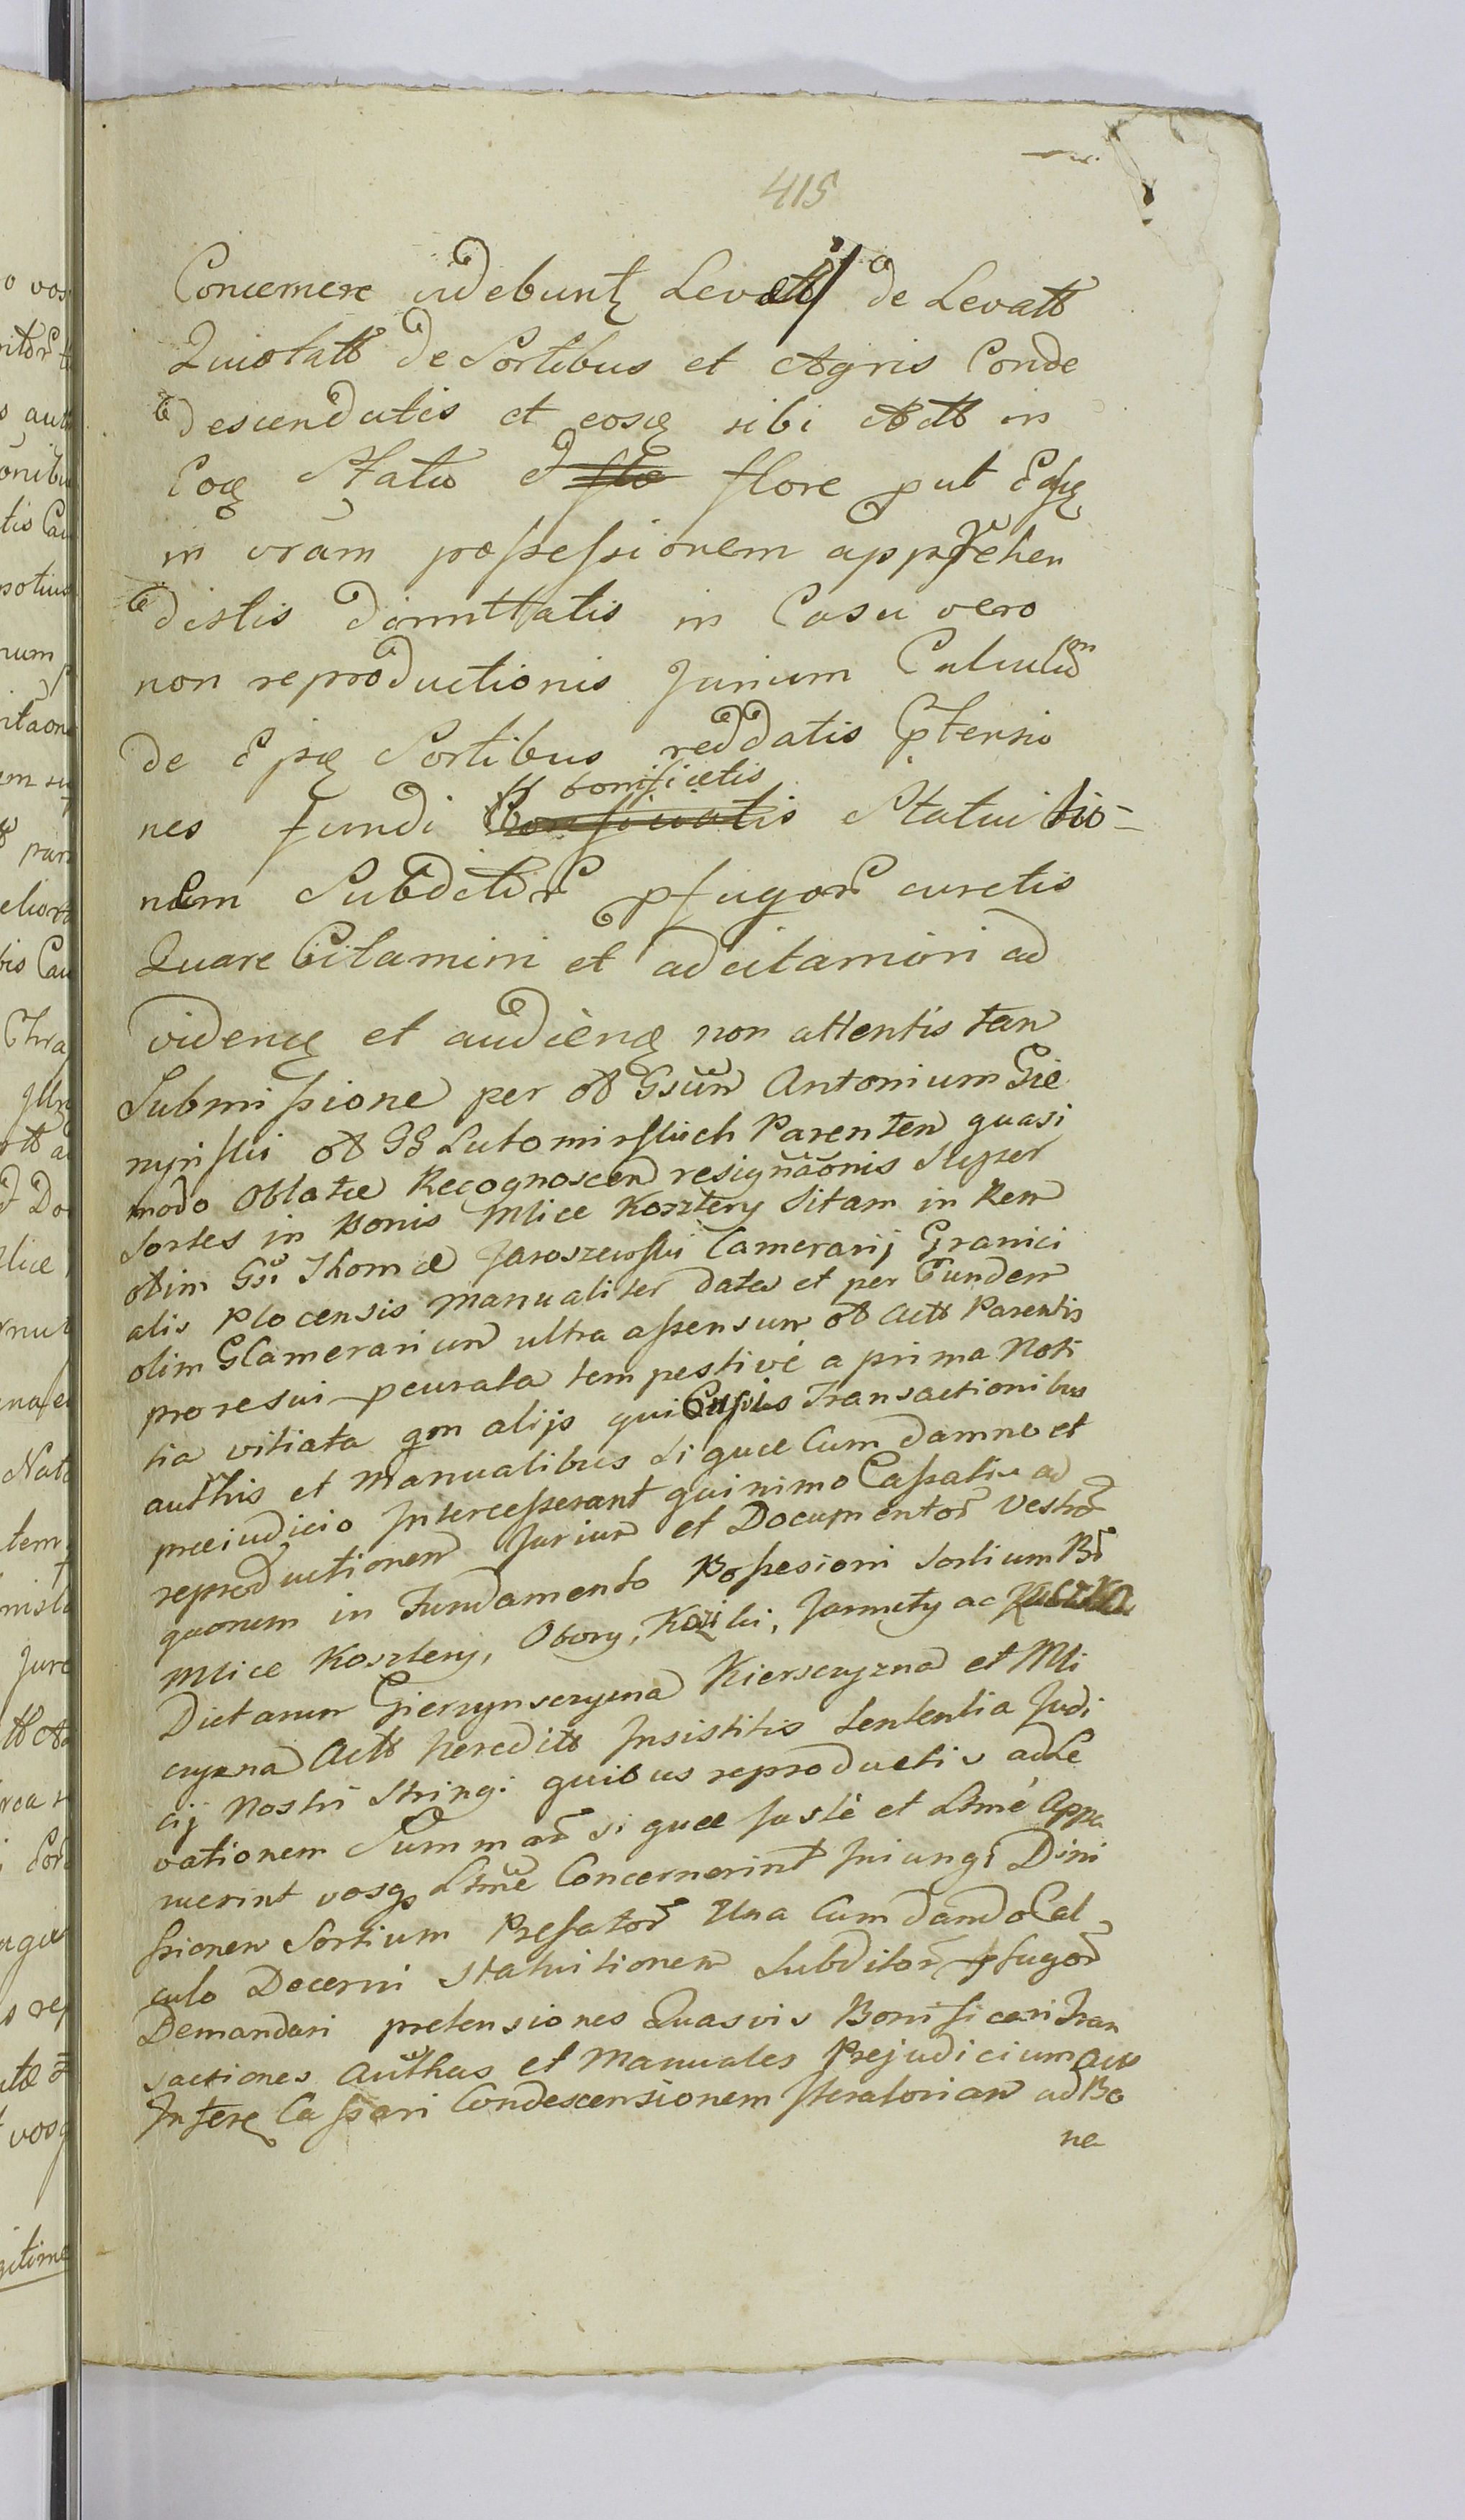 415
Concernere videbunt Levatt de Levatt
Quietatt de Sortibus et Agris Conde
descendatis et eosq sibi Actt in
Eoq Statu et flore put Easq
in vram possessionem apprehen
distis dimittatis in Casu vero
non reproductionis Jurium Calculum
de Eisq Sortibus reddatis Ptensio
nes fundi bonificetis Statuitio-
nem Subditor pfugor curetis
Quare Citamini et adcitamini ad
videnq et audienq non attentis tan
Submissione per ol Gsum Antonium Gie
rzynski ol GG Lutomirskich Parentem quasi
modo Oblatae Recognoscen resignaonis Super
Sortes in Bonis Mlice Kosztery Sitam in Rem
olim Gsi Thomae Jaroszewski Camerarij Granici
alis Plocensis Manualiter data et per Eundem
olim GCamerarium ultra assensum ol Actt Parentis
pro re sui pcurata tempestive a prima Noti
tia vitiata qm alijs quibusvis Transactionibus
authis et Manualibus si quae Cum damno et
praeiudicio Intercesserant quinimo Cassatis ad
reproductionem Jurium et Documentor Vestror
quorum in Fundamento Possesioni Sortium Br
Mlice Kosztery, Obory, Koziki, Jarnuty ac
Dictarum Gierzynsczyzna Kiersczyzna et Mli
czyzna Actt heredit Insistitis Sententia Judi
cij Nostri Stringi quibus reproductis ad Le
vationem Summar si quae Juste et Ltme Appa
ruerint vosq Ltme Concernerint Iniungi Dimi
ssionem Sortium Prefator Una Cum dando Cal
culo Decerni Statuitionem Subditor pfugor
Demandari pretensiones Quasvis Bonificari Tran
sactiones Authas et Manuales Prejudicium Actt
Inferen Cassari Condescensionem Iteratoriam ad Bo
na